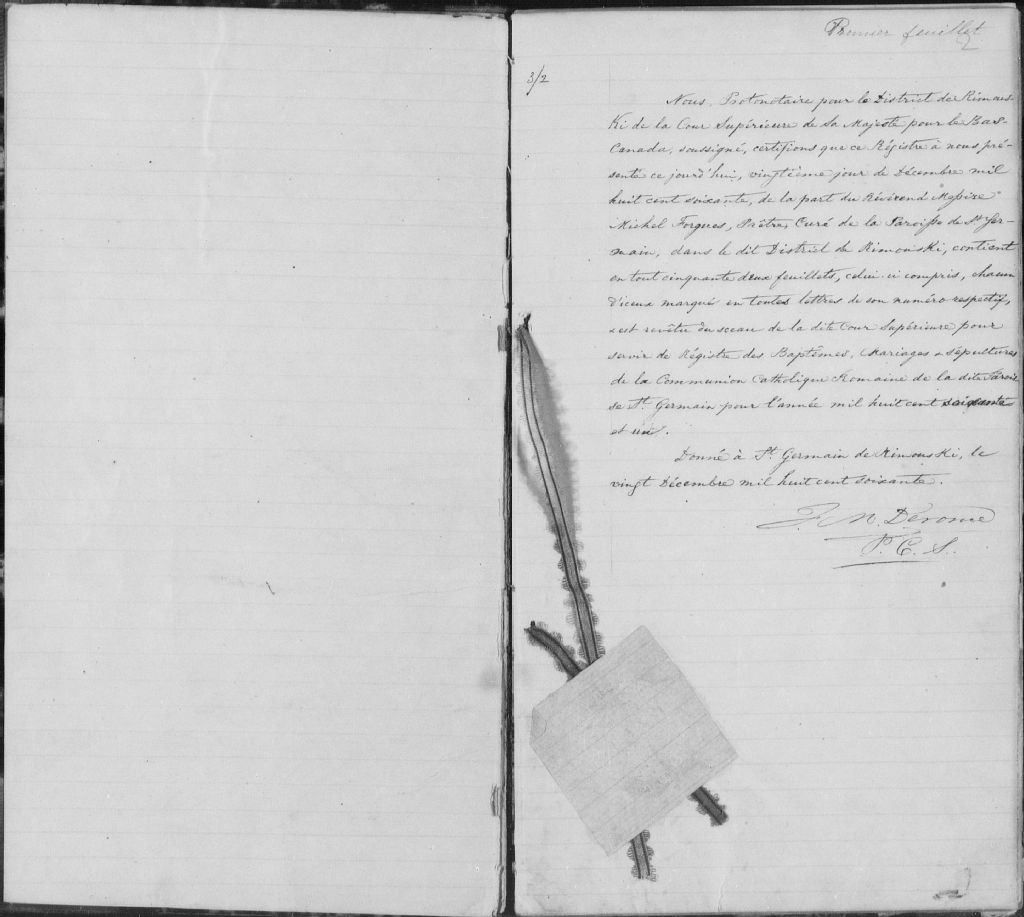 Premier feuillet
3/2
Nous, Protonotaire pour le District de Rimous-
Ki de la Cour Supérieure de Sa Majesté pour le Bas-
Canada, soussigné, certifions que ce Régistre à nous pré-
senté ce jourd'hui, vingtième jour de Décembre mil
huit cent soixante, de la part du Révérend Messire
Michel Forgues, Prêtre, Curé de la Paroisse de St Ger-
main, dans le dit District de Rimouski, contient
en tout cinquante deux feuillets, celui-ci compris, chacun
d'iceux marqué en toutes lettres de son numéro respectif,
& est revêtu du sceau de la dite Cour Supérieure pour
servir de Régistre des Baptêmes, Mariages & Sépultures
de la Communion Catholique Romaine de la dite Parois-
se St. Germain pour l'année mil huit cent soixante
et un.
Donné à St. Germain de Rimouski, le
vingt Décembre mil huit cent soixante.
F. M. Derome
P. C. S.